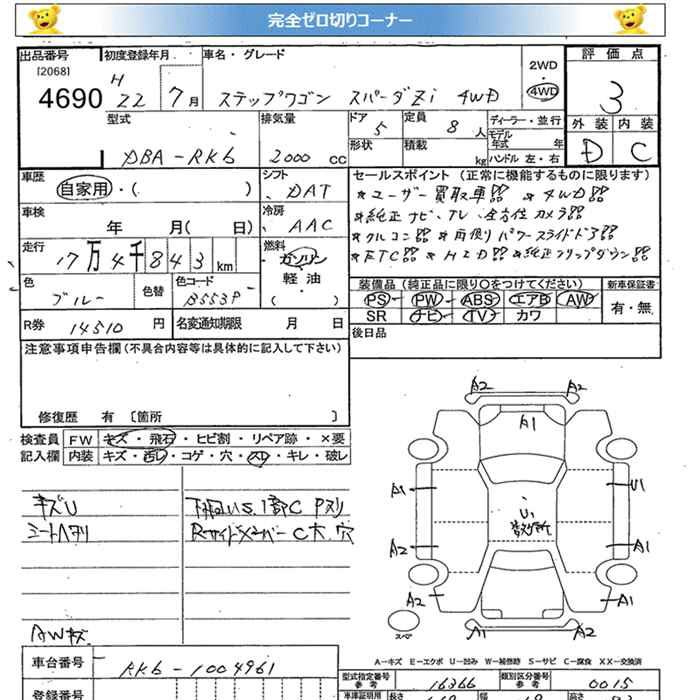 完全ゼロ切りコーナー
出品番号 初度登録年月 車名・グレード 2WD 評価点
[2068] H 4WD
4690 22 7月 ステップワゴン スパーダZi 4WD 3
型式 排気量 ドア 5 定員 8人 ディーラー・並行 外装 内装
モデル年式 年
DBA-RK6 2000cc 形状 積載 kg ハンドル 左・右 D C
車歴 シフト セールスポイント (正常に機能するものに限ります)
自家用・( ) DAT *ユーザー買取車!! *4WD!!
車検 冷房 *純正ナビ、TV、全方位カメラ!!
年 月( 日) AAC *クルコン!! *両側パワースライドドア!!
走行 燃料 *ETC!! *HID!! *純正フリップダウン!!
17万4千843km ガソリン
軽油
( )
色 色替 色コード 装備品 (純正品に限り○をつけてください) 新車保証書
ブルー B553P PS PW ABS エアB AW 有・無
SR ナビ TV カワ
R券 14510円 名変通知期限 月 日 後日品
注意事項申告欄 (不具合内容等は具体的に記入して下さい)
修復歴 有 〔箇所 〕
検査員 FW キズ・飛石・ヒビ割・リペア跡・×要
記入欄 内装 キズ・汚レ・コゲ・穴・スレ・キレ・破レ
キズU 下廻りUS.1部C Pヌリ
シートヘタリ RサイドメンバーC大.穴
AWキズ
A2 A2
A1
A1 U1
U1
A2 A1
A2 A1
スペア
A1 A1
A-キズ E-エクボ U-凹み W-補修跡 S-サビ C-腐食 XX-交換済
車台番号 RK6-1004961
型式指定番号 参考 16366 類別区分番号 参考 0015
登録番号 車庫証明用 長さ 幅 高さ